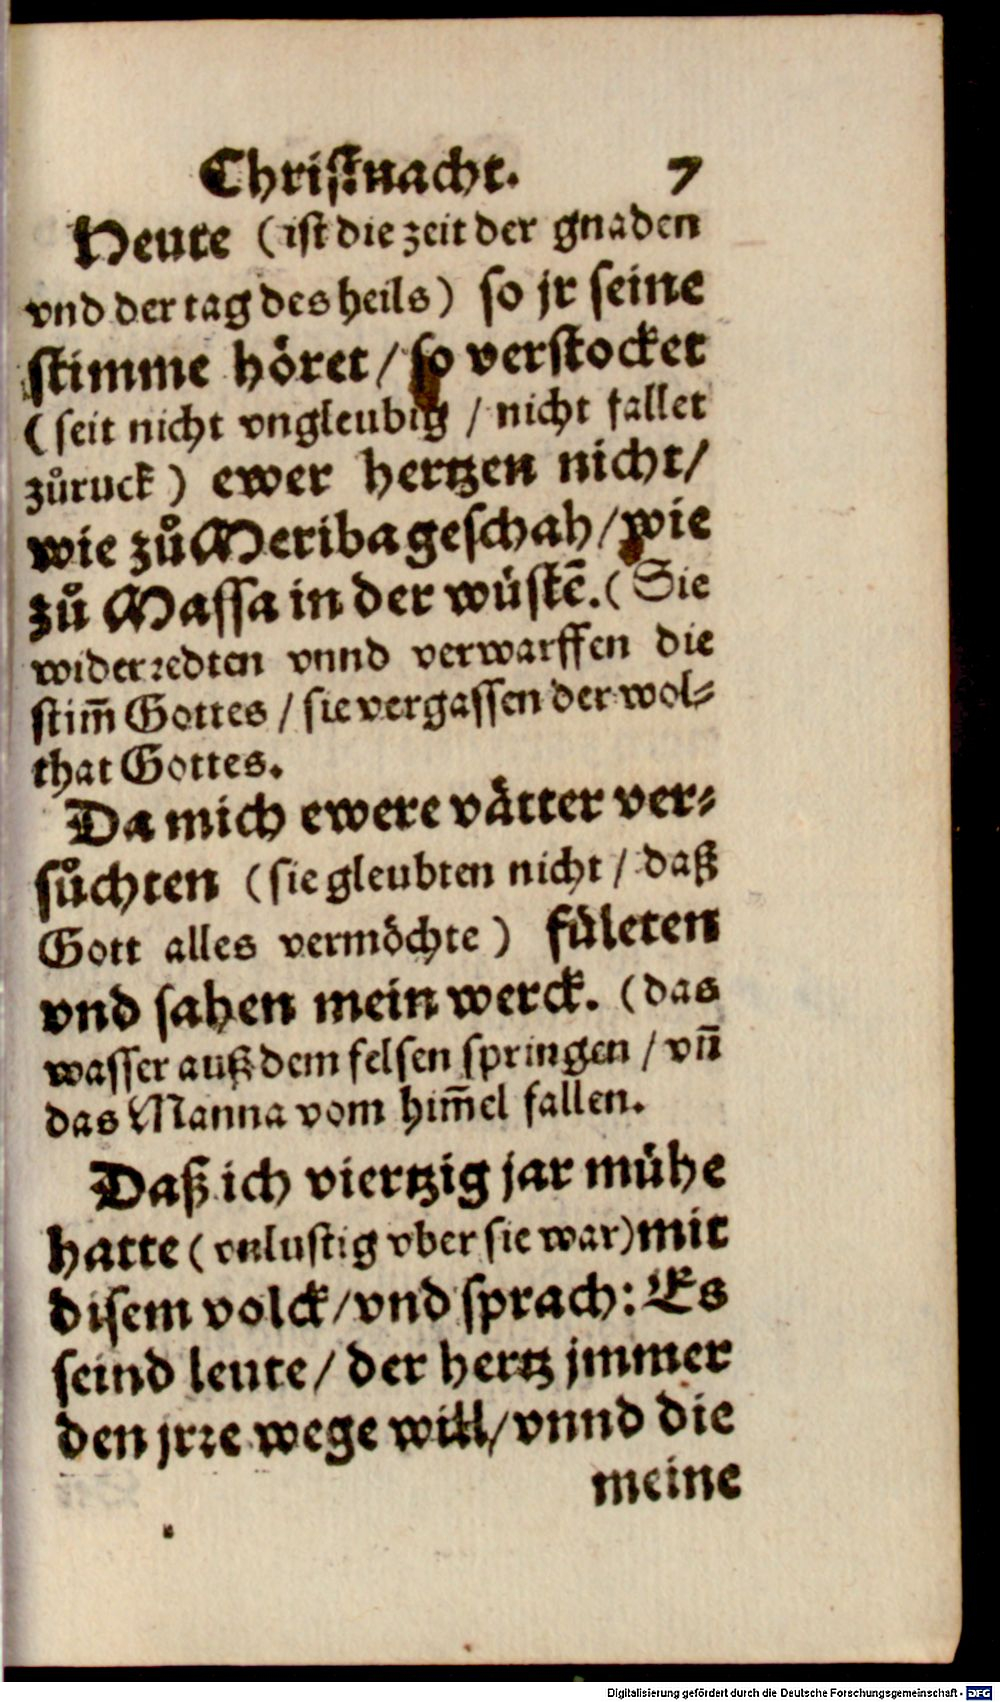 Christnacht. 7
Heute (ist die zeit der gnaden
vnd der tag des heils) so jr seine
stimme höret / so verstocket
(seit nicht vngleubig / nicht fallet
zůruck) ewer hertzen nicht/
wie zů Meriba geschah / wie
zů Massa in der wüstē. (Sie
widerredten vnnd verwarffen die
stim̄ Gottes / sie vergassen der wol-
that Gottes.
Da mich ewere vätter ver-
sůchten (sie gleubten nicht / daß
Gott alles vermöchte) fületen
vnd sahen mein werck. (das
wasser auß dem felsen springen / vn̄
das Manna vom him̄el fallen.
Daß ich viertzig jar mühe
hatte (vnlustig vber sie war) mit
disem volck / vnd sprach: Es
seind leute / der hertz jmmer
den jrre wege will / vnnd die
meine
Digitalisierung gefördert durch die Deutsche Forschungsgemeinschaft - DFG